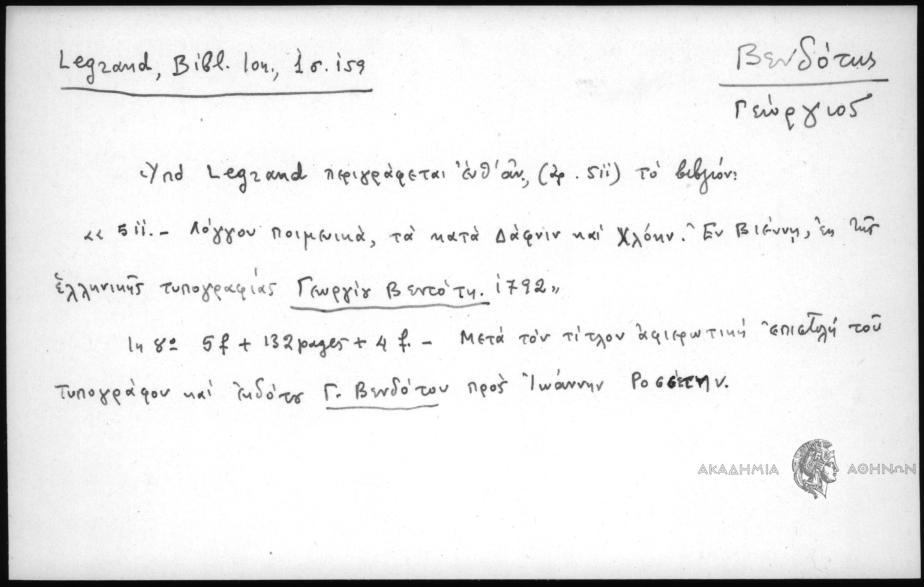 Legrand, Bibl. Ion., 1 σ. 159
Βενδότης
Γεώργιος
Ὑπό Legrand περιγράφεται ἐνθ' ἀν., (ἀρ. 511) τό βιβλίον:
« 511. - Λόγγου ποιμενικά, τά κατά Δάφνιν καί Χλόην. Ἐν Βιέννῃ, ἐκ τῆς
ἑλληνικῆς τυπογραφίας Γεωργίου Βεντότη. 1792»
In 8º 5 f + 132 pages + 4 f. - Μετά τόν τίτλον ἀφιερωτική ἐπιστολή τοῦ
τυπογράφου καί ἐκδότου Γ. Βενδότου πρός Ἰωάννην
ΑΚΑΔΗΜΙΑ ΑΘΗΝΩΝ